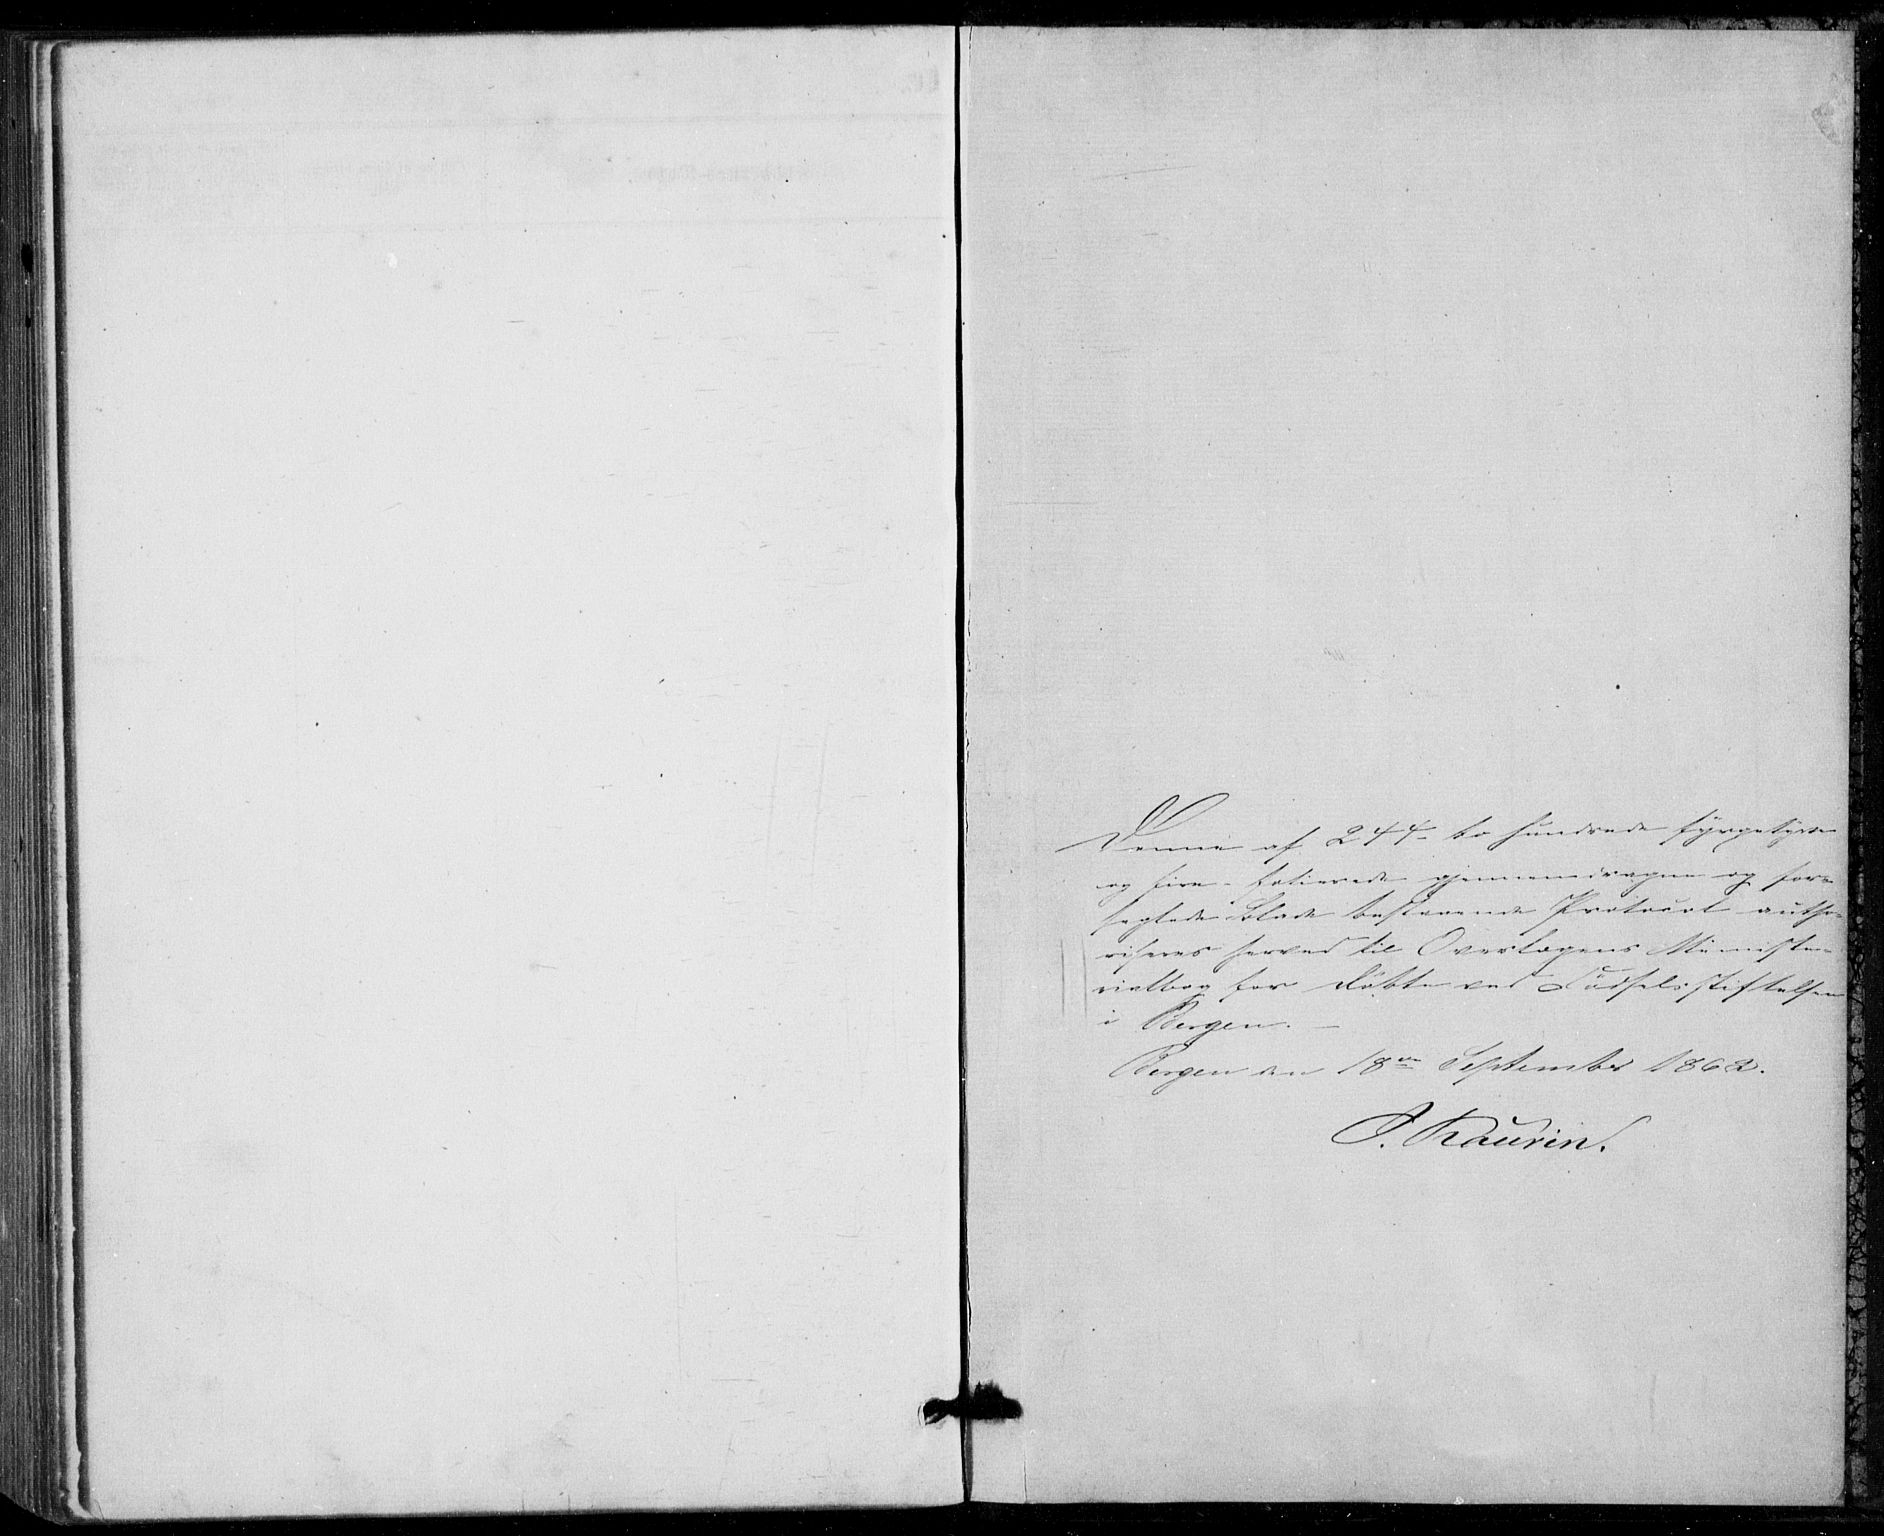 Denne af 244- to hundrede fyrgetyve
og fire - folierede gjennemdragne og for-
seglede Blade bestaaende Protocol autho-
riseres herved til Overlægens Ministe-
rialbog for døbte ved Födselsstiftelsen
i Bergen. -
Bergen den 18de September 1862.
J. Kaurin.